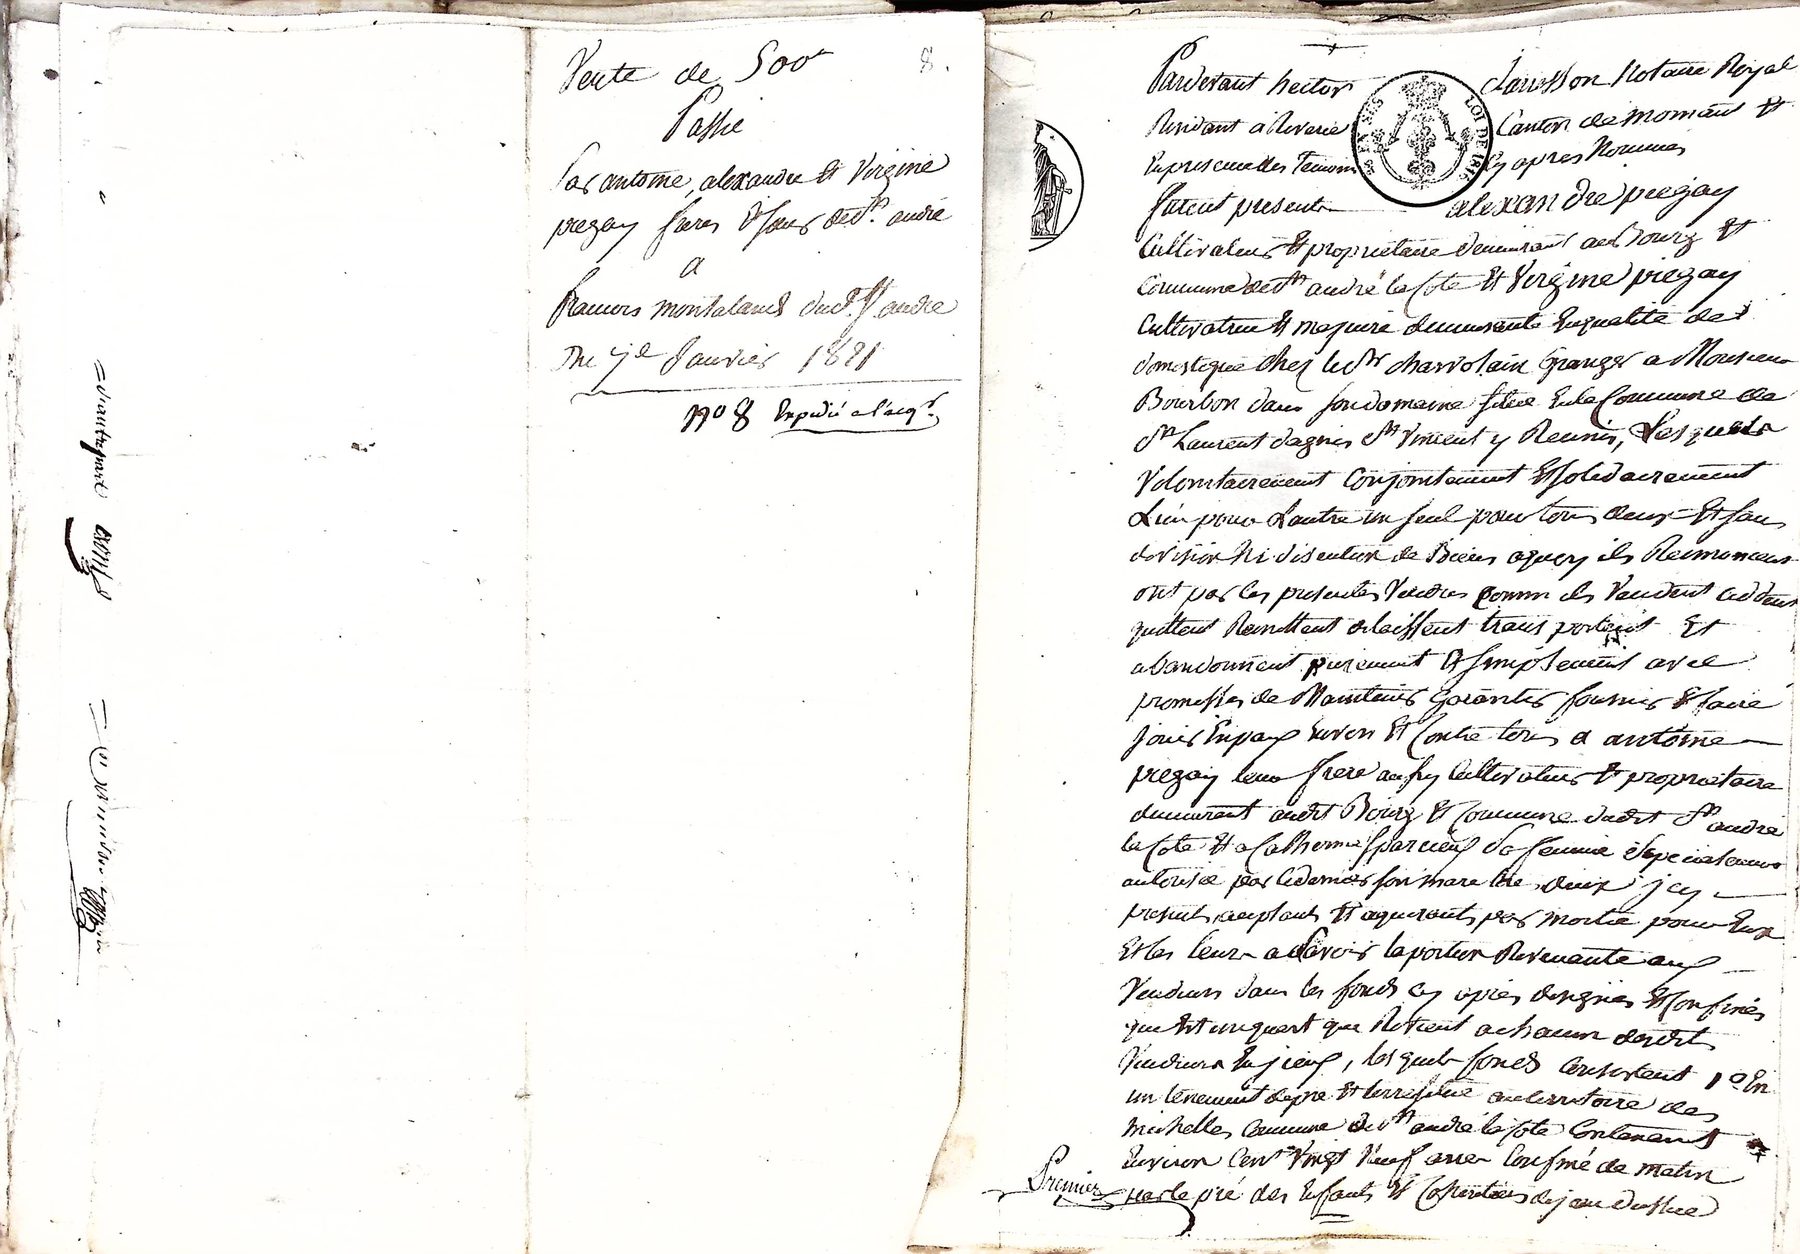 Vente de 500f
8.
Passée
Par antoine, alexandre Et Virginie
pregay freres Et sœur de St. andré
a
francois montaland dud. St. andre
Du 7e Janvier 1821
No 8 Expedié a l'acqr.
Pardevant hector Claresson Notaire Royal
Residant a Riverie Canton de mornant Et
En presence des Temoins Cy apres Nommés
furent presents alexandre pregay
Cultivateur Et proprietaire demeurant au Bourg Et
Commune de St andré la Cote Et Virginie pregay
Cultivatrice Et majeure demeurante En qualité de
domestique chez le Sr charvolain Granger a Monsieur
Bourbon dans son domaine situé En la Commune de
St Laurent dagnis St Vincent y Reunis, Lesquels
Volontairement Conjointement Et solidairement
L'un pour L'autre un seul pour tous deux Et sans
division Ni discution de Biens aquoy ils Renoncent
ont par les presentes Vendus Comme ils Vendent cedent
quittent Remettent delaissent transportent Et
abandonnent purement Et simplement avec
promesses de Maintenir Garantir fournir Et faire
jouir En paix Envers Et Contre tous a antoine
pregay leur frere aussy Cultivateur Et proprietaire
demeurant audit Bourg Et Commune dudit St andré
la Cote Et a Catherine sa femme Especialement
autorisé par ce dernier son mare tre deux jcy
presents acceptants Et aquerants par moitié pour Eux
Et les leurs a Savoir la portion Revenante aux
Vendeurs dans les fonds cy après designés Et Confinés
qui Est un quart que Revient a chacun desdits
Vendeurs En jceux, lesquels fonds Consistent 1o En
un tenement de pré Et terre situé au territoire des
michelles Commune de St andré la Cote Contenant
Environ Cent Vingt Neuf ares Confiné de matin
par le pré des Enfants Et Coheritiers de jean
Premier